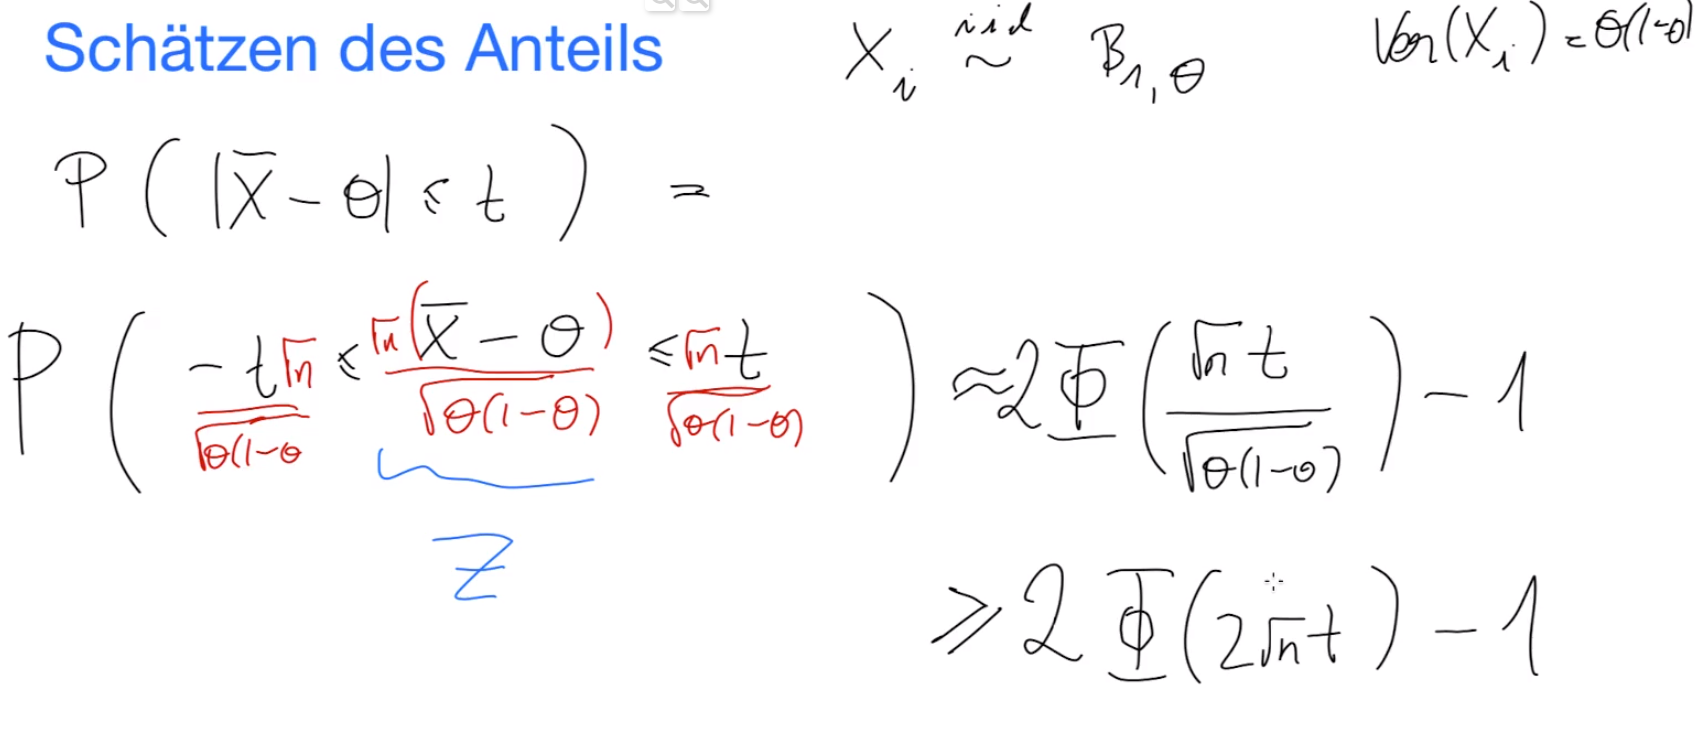 Schätzen des Anteils
X_i iid ~ B_{1,θ} Var(X_i) = θ(1-θ)
P( |X̄ - θ| ≤ t ) =
P( -t√n / √θ(1-θ ≤ √n(X̄ - θ) / √θ(1-θ) ≤ √n t / √θ(1-θ) ) ≈ 2Φ( √n t / √θ(1-θ) ) - 1
Z
≥ 2Φ(2√n t) - 1